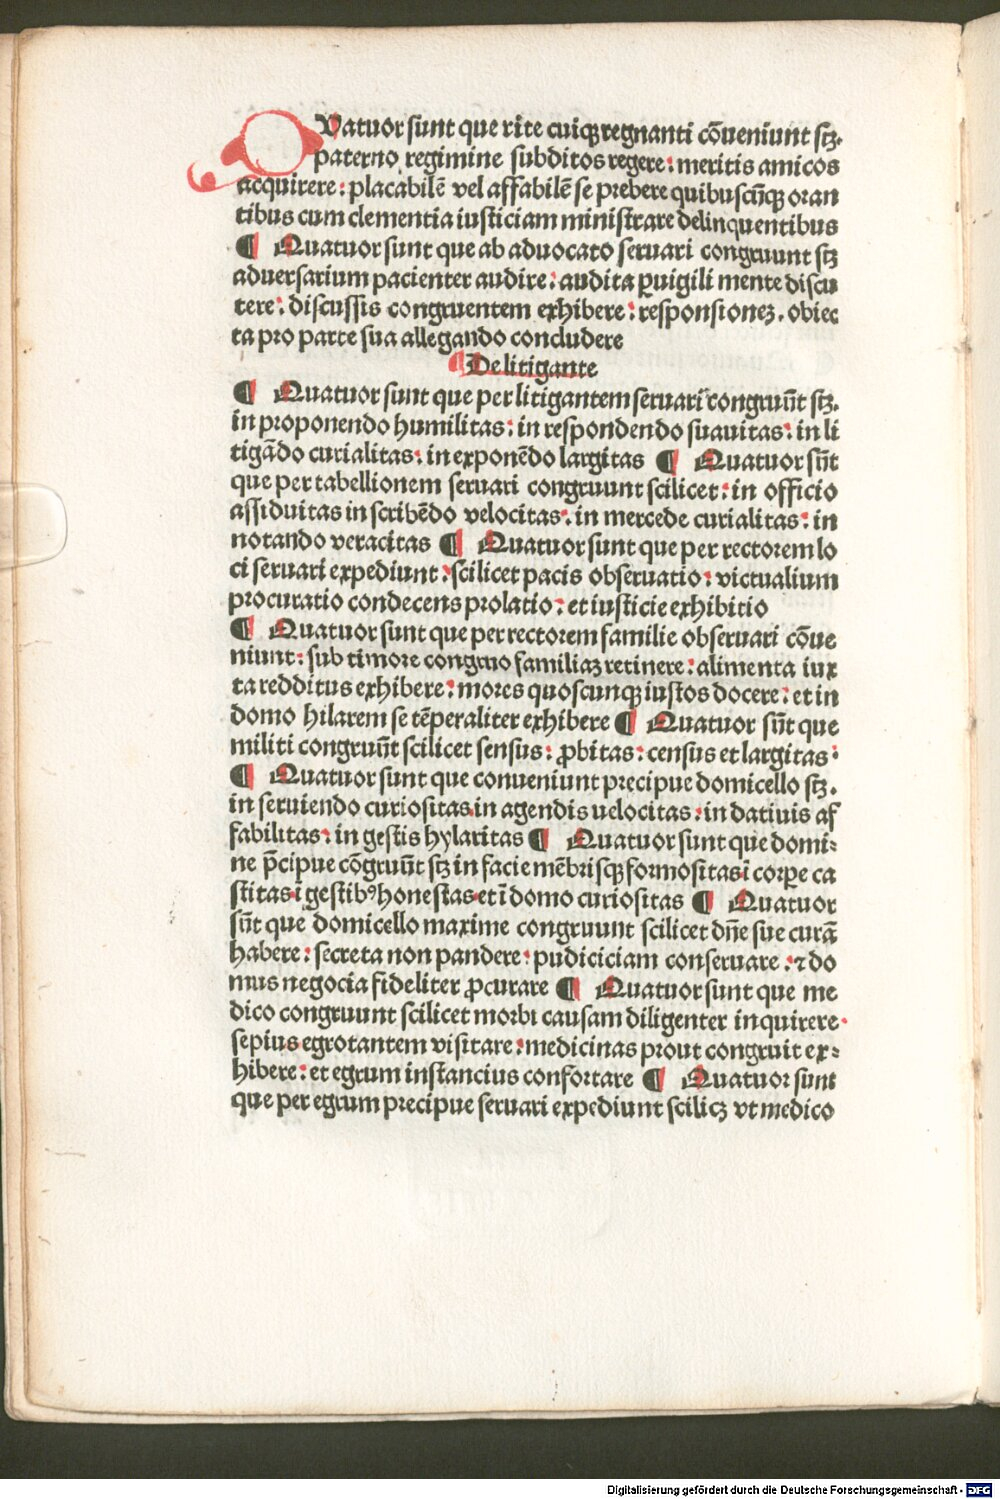 QVatuor sunt que rite cuiqꝫ regnanti cōveniunt scꝫ.
paterno regimine subditos regere: meritis amicos
acquirere: placabilē vel affabilē se prebere quibuscūqꝫ oran
tibus cum clementia iusticiam ministrare delinquentibus
¶ Quatuor sunt que ab aduocato seruari congruunt scꝫ
aduersarium pacienter audire: audita ꝑuigili mente discu
tere: discussis congruentem exhibere: responsioneꝫ. obiec
ta pro parte sua allegando concludere
¶ De litigante
¶ Quatuor sunt que per litigantem seruari congruūt scꝫ.
in proponendo humilitas: in respondendo suauitas: in li
tigādo curialitas: in exponēdo largitas ¶ Quatuor sūt
que per tabellionem seruari congruunt scilicet: in officio
assiduitas in scribēdo velocitas. in mercede curialitas: in
notando veracitas ¶ Quatuor sunt que per rectorem lo
ci seruari expediunt: scilicet pacis obseruatio: victualium
procuratio condecens prolatio: et iusticie exhibitio
¶ Quatuor sunt que per rectorem familie obseruari cōue
niunt: sub timore congruo familiaꝫ retinere: alimenta iux
ta redditus exhibere: mores quoscunqꝫ iustos docere: et in
domo hilarem se tēperaliter exhibere ¶ Quatuor sūt que
militi congruūt scilicet sensus: ꝓbitas: census et largitas:
¶ Quatuor sunt que conueniunt precipue domicello scꝫ.
in seruiendo curiositas. in agendis uelocitas: in datiuis af
fabilitas: in gestis hylaritas ¶ Quatuor sunt que domi⸗
ne p̄cipue cōgruūt scꝫ in facie mēbrisqꝫ formositas ī corꝑe ca
stitas ī gestibꝰ honestas et ī domo curiositas ¶ Quatuor
sūt que domicello maxime congruunt scilicet dn̄e sue curā
habere: secreta non pandere: pudiciciam conseruare: ⁊ do
mus negocia fideliter ꝓcurare ¶ Quatuor sunt que me
dico congruunt scilicet morbi causam diligenter inquirere.
sepius egrotantem visitare: medicinas prout congruit ex⸗
hibere: et egrum instancius confortare ¶ Quatuor sunt
que per egrum precipue seruari expediunt scilicꝫ vt medico
Digitalisierung gefördert durch die Deutsche Forschungsgemeinschaft - DFG